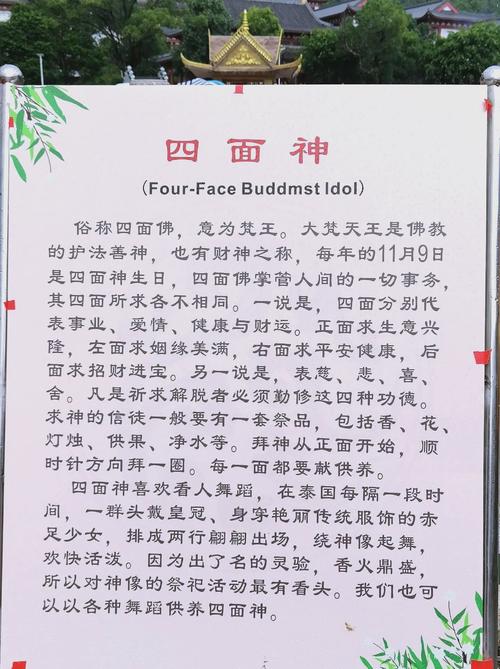 四面神
(Four-Face Buddmst Idol)
俗称四面佛，意为梵王。大梵天王是佛教
的护法善神，也有财神之称，每年的11月9日
是四面神生日，四面佛掌管人间的一切事务，
其四面所求各不相同。一说是，四面分别代
表事业、爱情、健康与财运。正面求生意兴
隆，左面求姻缘美满，右面求平安健康，后
面求招财进宝。另一说是，表慈、悲、喜、
舍。凡是祈求解脱者必须勤修这四种功德。
求神的信徒一般要有一套祭品，包括香、花、
灯烛、供果、净水等。拜神从正面开始，顺
时针方向拜一圈。每一面都要献供养。
四面神喜欢看人舞蹈，在泰国每隔一段时
间，一群头戴皇冠、身穿艳丽传统服饰的赤
足少女，排成两行翩翩出场，绕神像起舞，
欢快活泼。因为出了名的灵验，香火鼎盛，
所以对神像的祭祀活动最有看头。我们也可
以以各种舞蹈供养四面神。